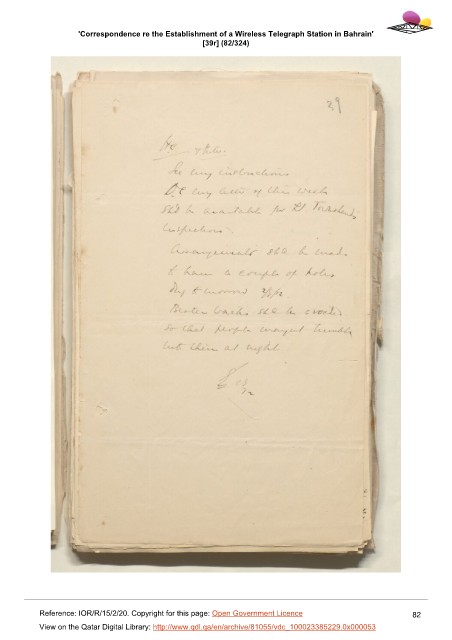 'Correspondence re the Establishment of a Wireless Telegraph Station in Bahrain'
[39r] (82/324)
39
See my instructions
my letter of this
shd be available for
inspection.
Arrangements shd be made
to have a couple of holes
dug tomorrow
shd be erected
so that people mayn't tumble
into them at night
Reference: IOR/R/15/2/20. Copyright for this page: Open Government Licence
82
View on the Qatar Digital Library: http://www.qdl.qa/en/archive/81055/vdc_100023385229.0x000053